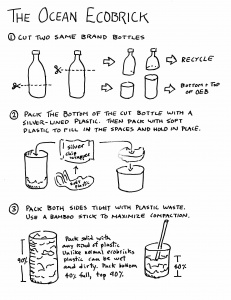 THE OCEAN ECOBRICK
① CUT TWO SAME BRAND BOTTLES
RECYCLE
BOTTOM + TOP
OF OEB
② PACK THE BOTTOM OF THE CUT BOTTLE WITH A
SILVER-LINED PLASTIC. THEN PACK WITH SOFT
PLASTIC TO FILL IN THE SPACES AND HOLD IN PLACE.
silver
chip
wrapper
soft plastic
③ PACK BOTH SIDES TIGHT WITH PLASTIC WASTE.
USE A BAMBOO STICK TO MAXIMIZE COMPACTION.
90%
Pack solid with
any kind of plastic
Unlike normal ecobricks
plastic can be wet
and dirty. Pack bottom
60% full, top 90%.
60%